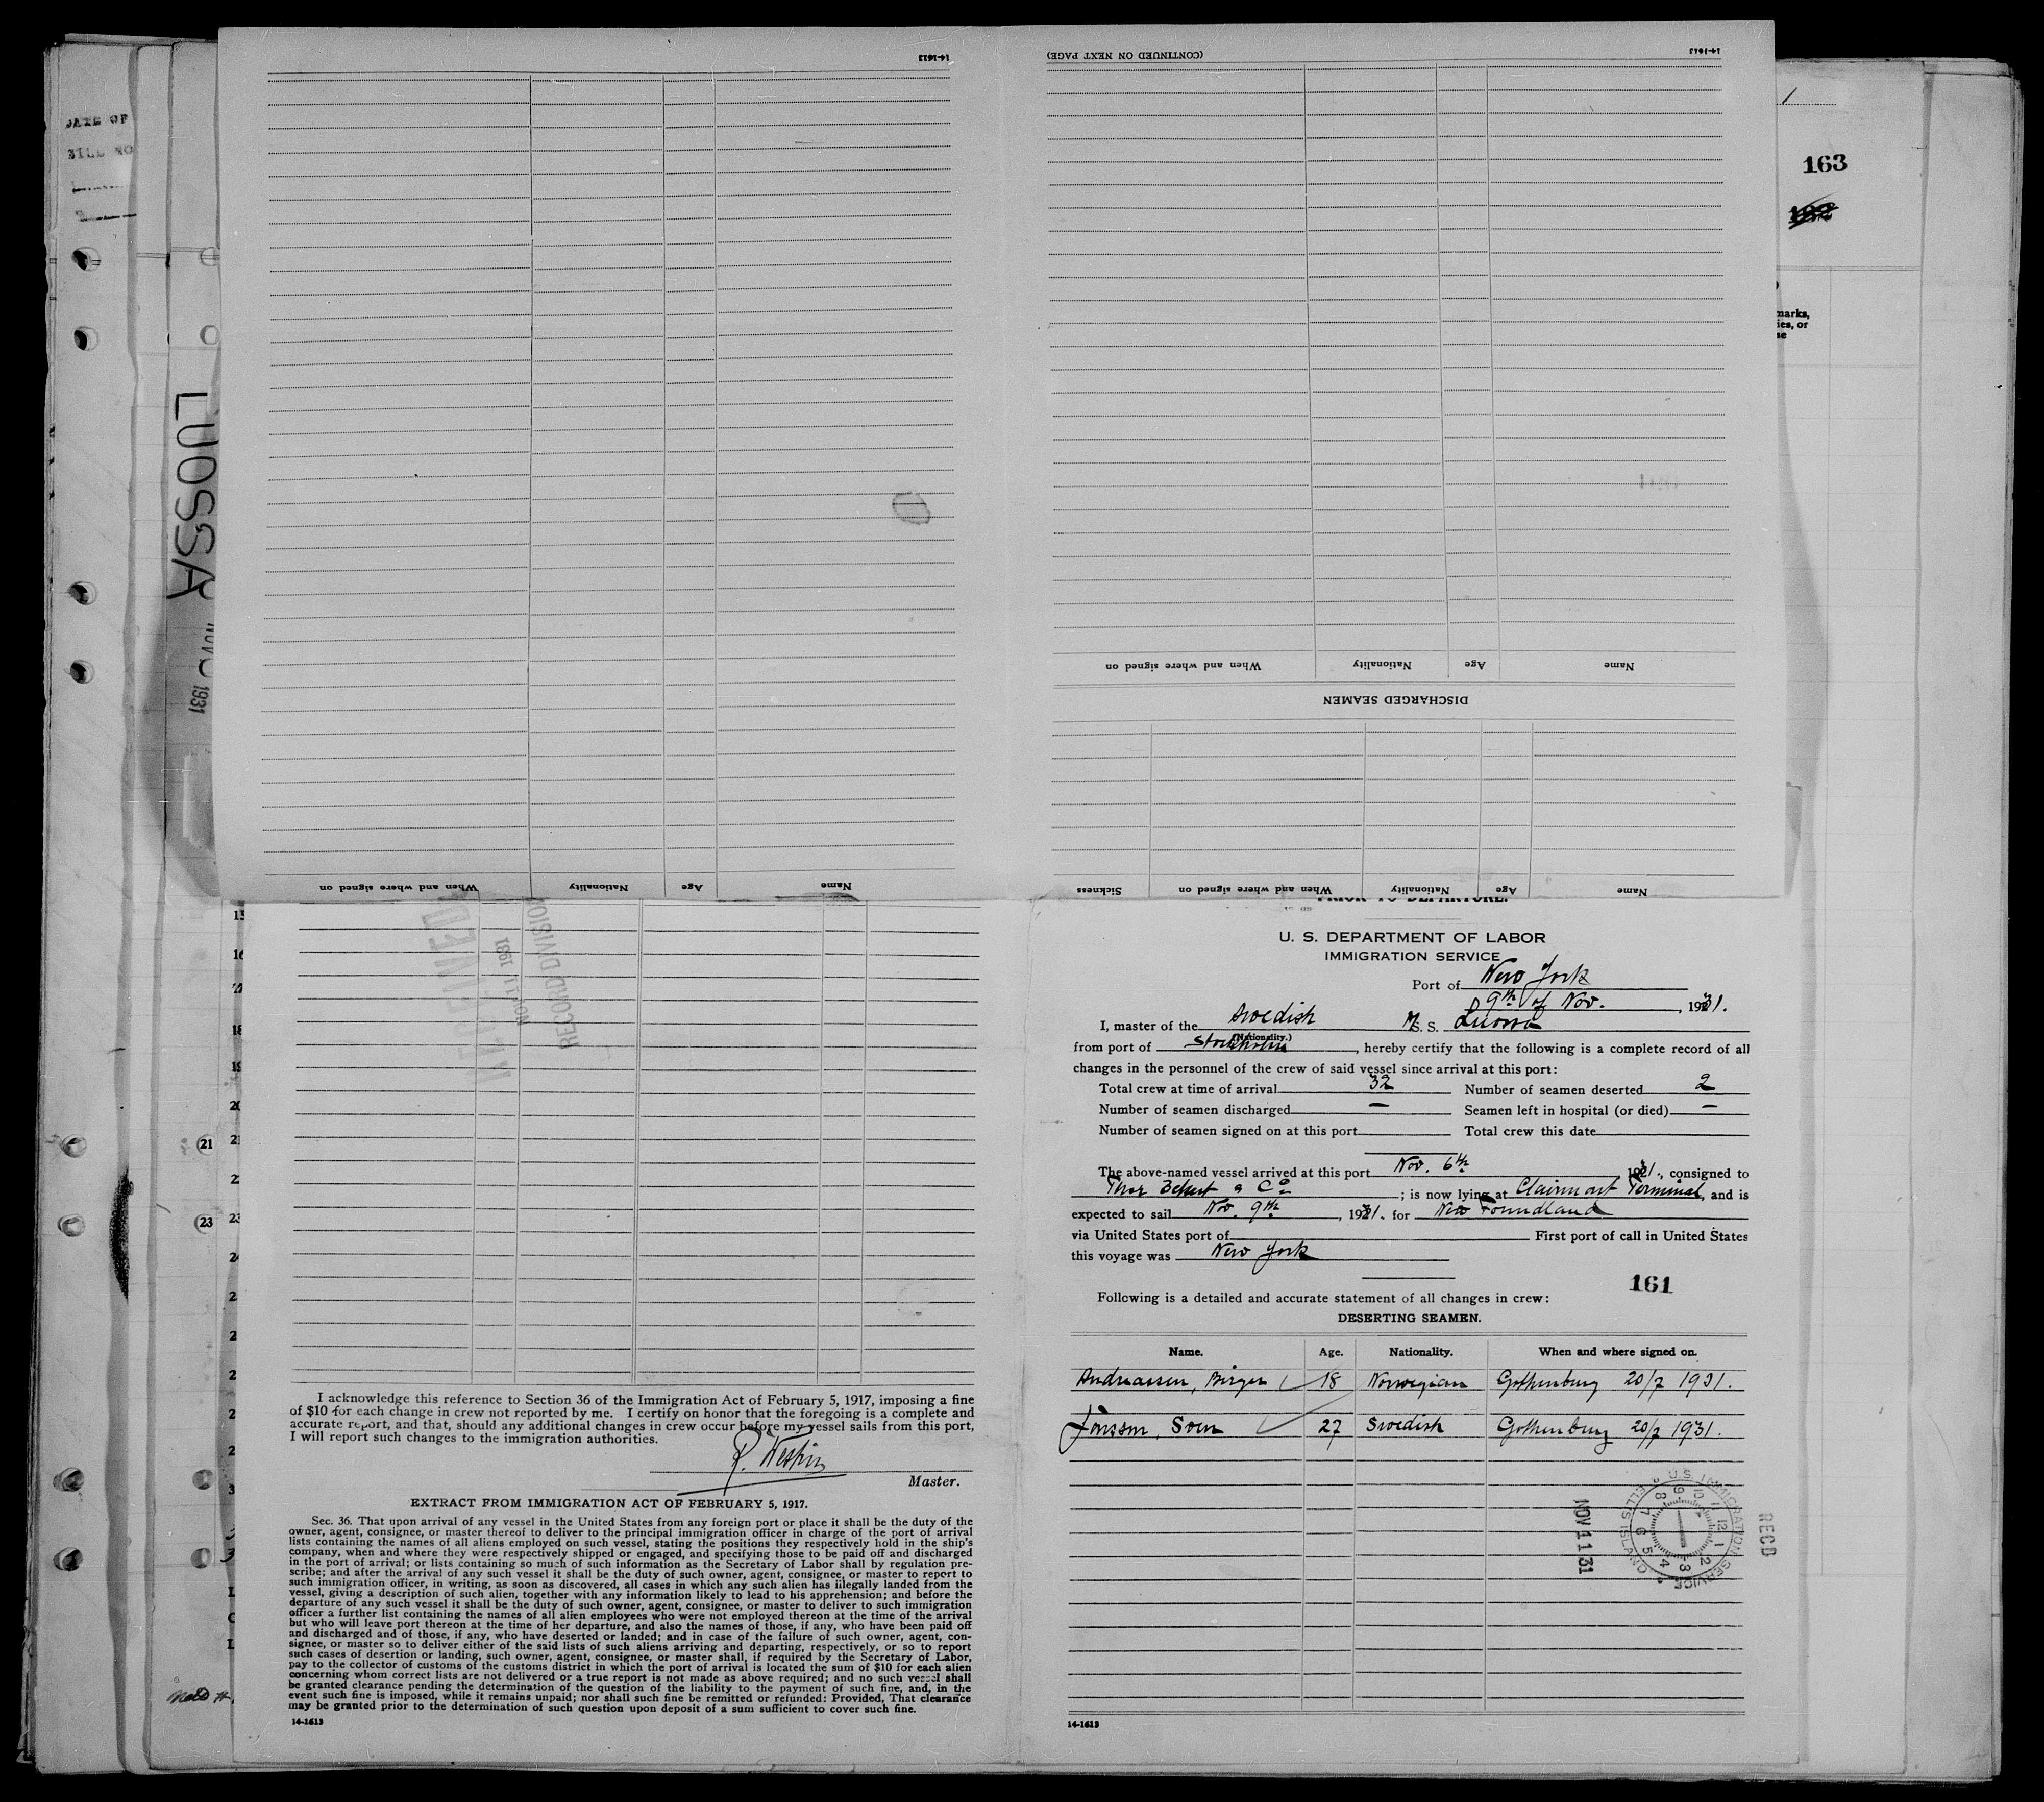 14-1613
(CONTINUED ON NEXT PAGE)
14-1613
DATE OF
BILL NO
163
182
marks,
ies, or
se
LUOSSA
1931
When and where signed on
Nationality
Age
Name
DISCHARGED SEAMEN
When and where signed on
Nationality
Age
Name
Sickness
When and where signed on
Nationality
Age
Name
PRIOR TO DEPARTURE.
U. S. DEPARTMENT OF LABOR
IMMIGRATION SERVICE
Port of New York
9th of Nov. , 1931.
I, master of the Swedish M. S. Luossa
(Nationality.)
from port of Stockholm , hereby certify that the following is a complete record of all
changes in the personnel of the crew of said vessel since arrival at this port:
Total crew at time of arrival 32 Number of seamen deserted 2
Number of seamen discharged — Seamen left in hospital (or died) —
Number of seamen signed on at this port Total crew this date
The above-named vessel arrived at this port Nov. 6th 1931., consigned to
Thor Eckert & Co ; is now lying at Clairmont Terminal, and is
expected to sail Nov. 9th , 1931. for New Foundland
via United States port of First port of call in United States
this voyage was New York
161
Following is a detailed and accurate statement of all changes in crew:
DESERTING SEAMEN.
Name. Age. Nationality. When and where signed on.
Andreassen, Birger 18 Norwegian Gothenburg 20/7 1931.
Jönsson, Sven 27 Swedish Gothenburg 20/7 1931.
U.S. IMMIGRATION SERVICE
ELLIS ISLAND
12 1 2 3 4 5 6 7 8 9 10 11
NOV 11 31
RECD
14-1613
NOV 11 1931
RECORD DIVISION
15
16
18
19
20
21
(21)
(23)
23
I acknowledge this reference to Section 36 of the Immigration Act of February 5, 1917, imposing a fine
of $10 for each change in crew not reported by me. I certify on honor that the foregoing is a complete and
accurate report, and that, should any additional changes in crew occur before my vessel sails from this port,
I will report such changes to the immigration authorities.
R. Westin
Master.
EXTRACT FROM IMMIGRATION ACT OF FEBRUARY 5, 1917.
Sec. 36. That upon arrival of any vessel in the United States from any foreign port or place it shall be the duty of the
owner, agent, consignee, or master thereof to deliver to the principal immigration officer in charge of the port of arrival
lists containing the names of all aliens employed on such vessel, stating the positions they respectively hold in the ship's
company, when and where they were respectively shipped or engaged, and specifying those to be paid off and discharged
in the port of arrival; or lists containing so much of such information as the Secretary of Labor shall by regulation pre-
scribe; and after the arrival of any such vessel it shall be the duty of such owner, agent, consignee, or master to report to
such immigration officer, in writing, as soon as discovered, all cases in which any such alien has illegally landed from the
vessel, giving a description of such alien, together with any information likely to lead to his apprehension; and before the
departure of any such vessel it shall be the duty of such owner, agent, consignee, or master to deliver to such immigration
officer a further list containing the names of all alien employees who were not employed thereon at the time of the arrival
but who will leave port thereon at the time of her departure, and also the names of those, if any, who have been paid off
and discharged and of those, if any, who have deserted or landed; and in case of the failure of such owner, agent, con-
signee, or master so to deliver either of the said lists of such aliens arriving and departing, respectively, or so to report
such cases of desertion or landing, such owner, agent, consignee, or master shall, if required by the Secretary of Labor,
pay to the collector of customs of the customs district in which the port of arrival is located the sum of $10 for each alien
concerning whom correct lists are not delivered or a true report is not made as above required; and no such vessel shall
be granted clearance pending the determination of the question of the liability to the payment of such fine, and, in the
event such fine is imposed, while it remains unpaid; nor shall such fine be remitted or refunded: Provided, That clearance
may be granted prior to the determination of such question upon deposit of a sum sufficient to cover such fine.
14-1613